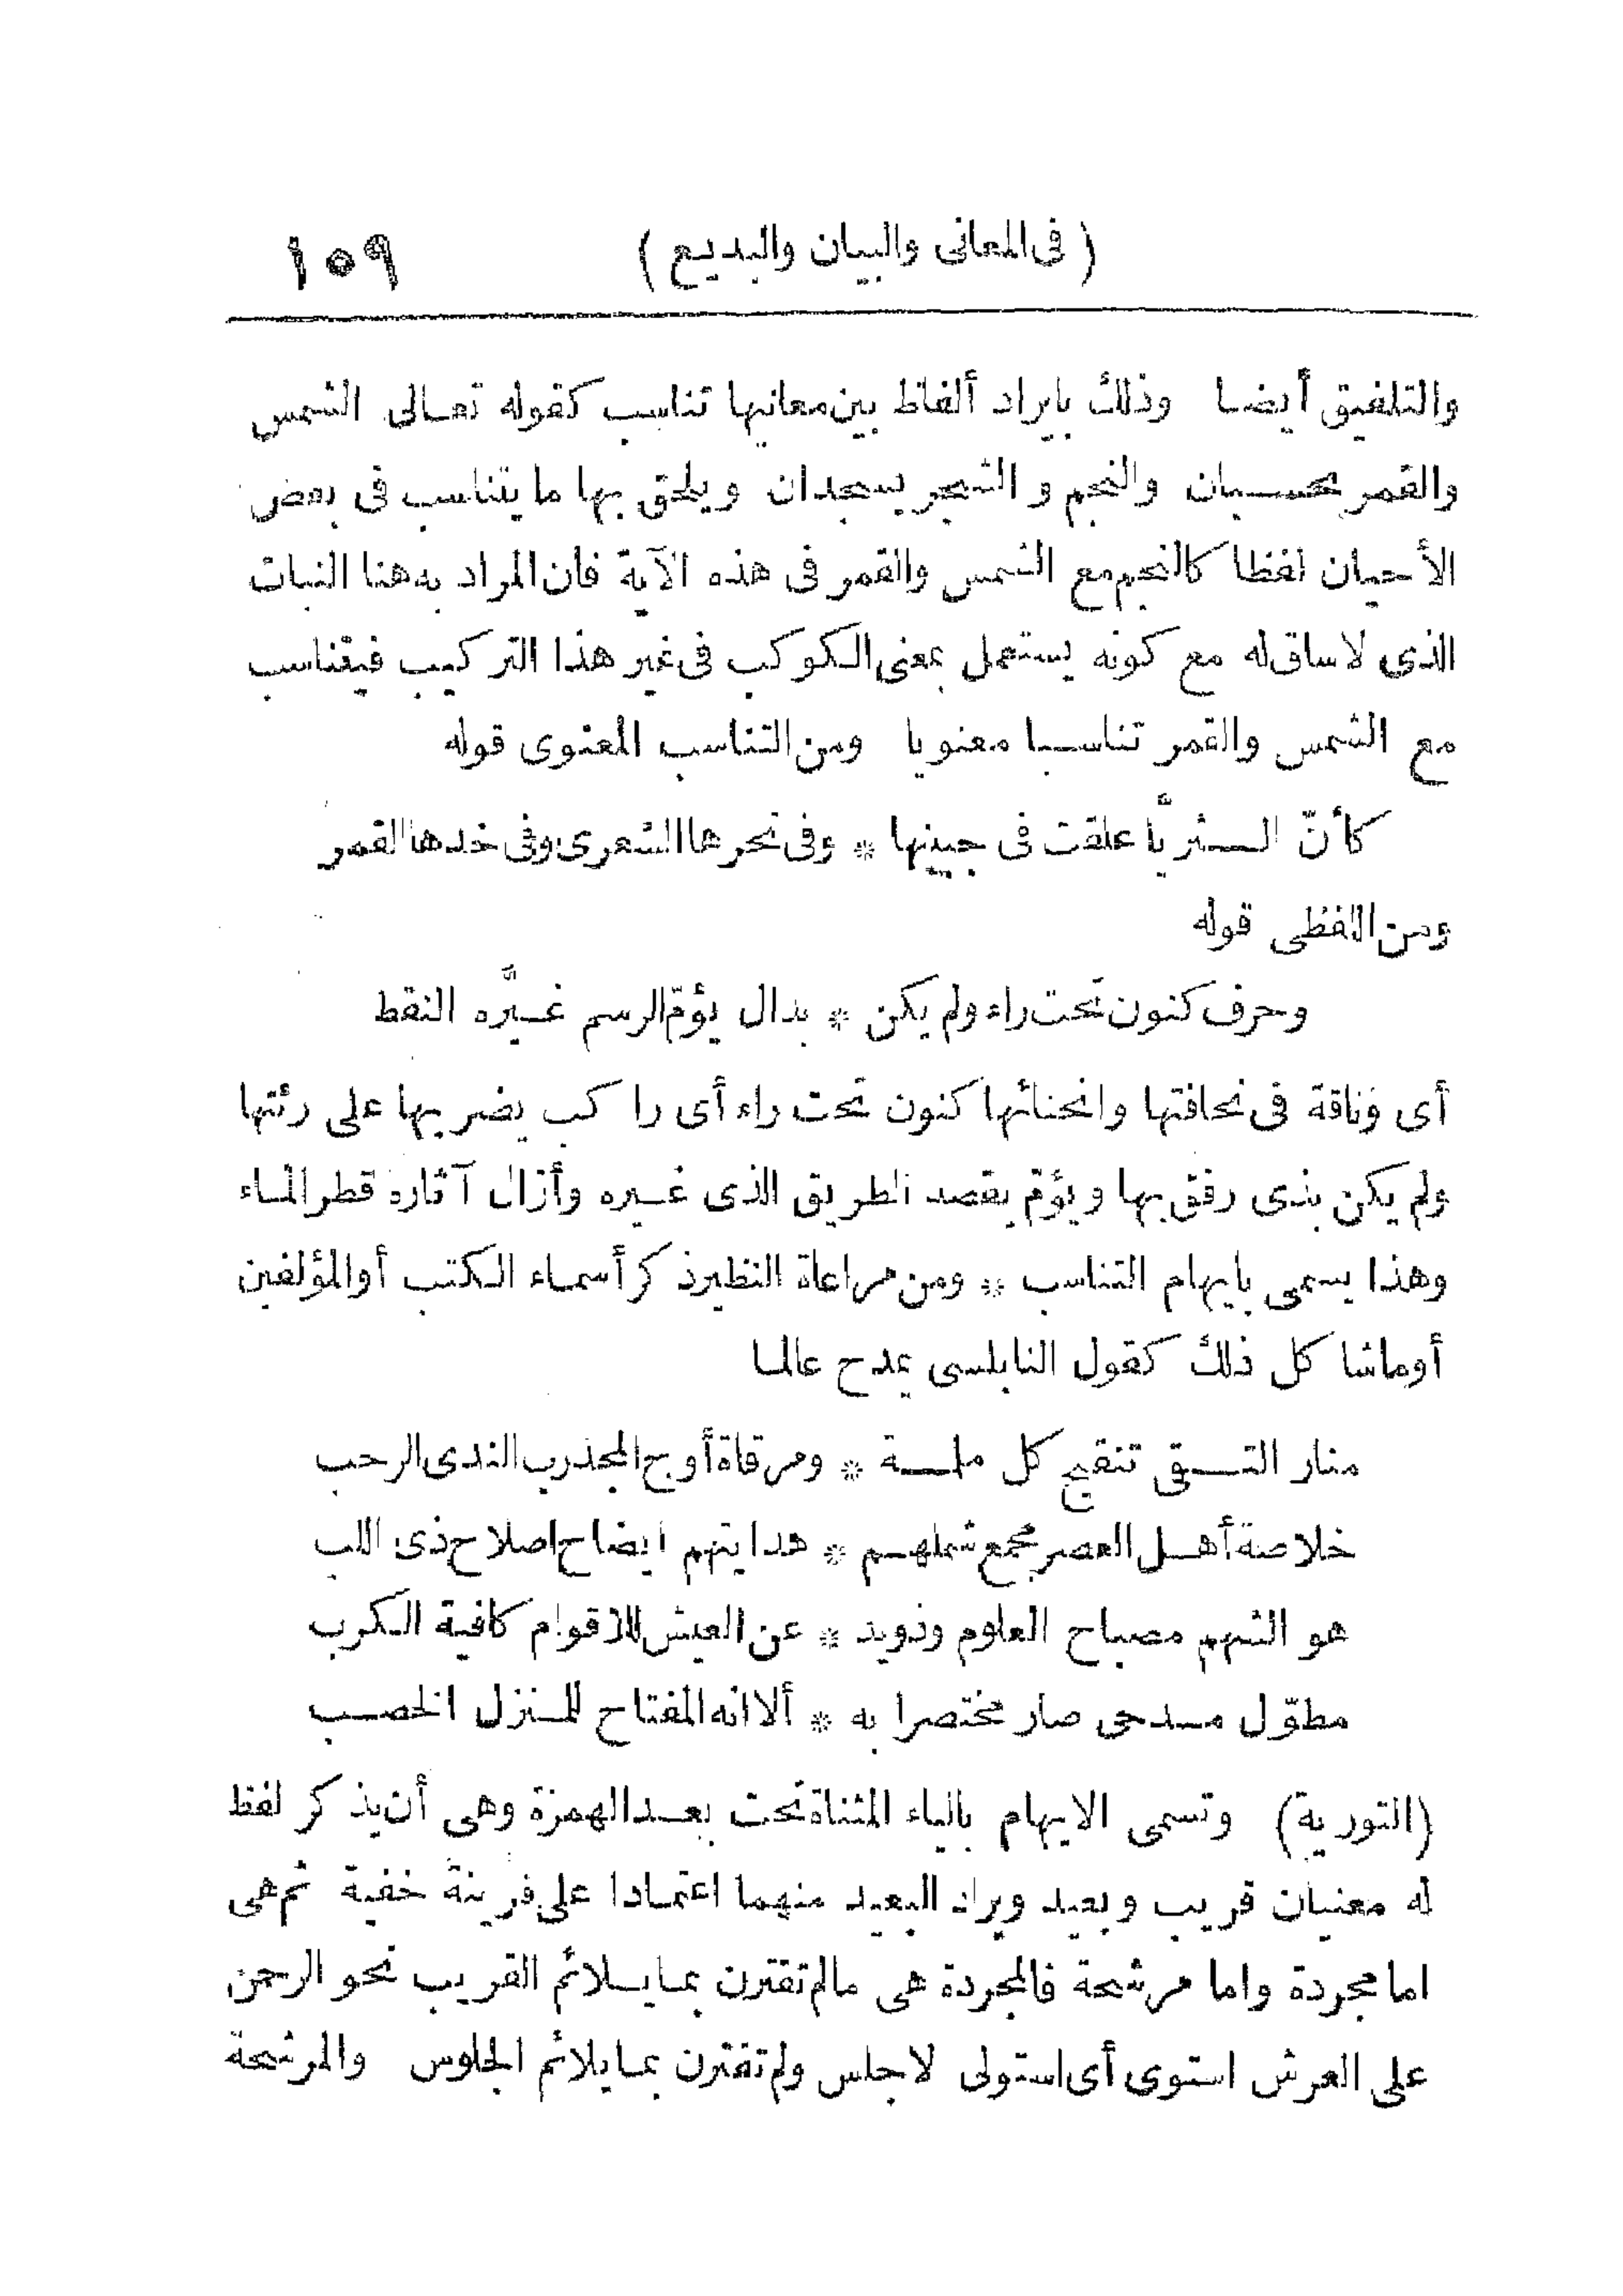 (فى المعانى والبيان والبديع) ١٥٩
والتلفيق أيضا وذلك بايراد ألفاظ بين معانيها تناسب كقوله تعالى الشمس
والقمر بحسبان والنجم والشجر يسجدان ويلحق بها ما يتناسب فى بعض
الأحيان لفظا كالنجم مع الشمس والقمر فى هذه الآية فان المراد به هنا النبات
الذى لا ساق له مع كونه يستعمل بمعنى الكوكب فى غير هذا التركيب فيتناسب
مع الشمس والقمر تناسبا معنويا ومن التناسب المعنوى قوله
كأنّ الثريَّا علقت فى جبينها * وفى نحرها الشعرى وفى خدها القمر
ومن اللفظى قوله
وحرف كنون تحت راء ولم يكن * بدال يؤمّ الرسم غيَّره النقط
أى وناقة فى نحافتها وانحنائها كنون تحت راء أى راكب يضربها على رئتها
ولم يكن بذى رفق بها ويؤمّ يقصد الطريق الذى غيره وأزال آثاره قطر الماء
وهذا يسمى بايهام التناسب * ومن مراعاة النظير ذكر أسماء الكتب أو المؤلفين
أو ماشا كل ذلك كقول النابلسى يمدح عالما
منار التقى تنقيح كل ملمة * ومرقاة أوج المجد رب الندى الرحب
خلاصة أهل العصر مجمع شملهم * هدايتهم ايضاح اصلاح ذى اللب
هو الشهم مصباح العلوم وذويد * عن العيش للاقوام كافية الكرب
مطوّل مدحى صار مختصرا به * ألا انه المفتاح للمنزل الخصب
(التورية) وتسمى الايهام بالياء المثناة تحت بعد الهمزة وهى أن يذكر لفظ
له معنيان قريب وبعيد ويراد البعيد منهما اعتمادا على قرينة خفية ثم هى
اما مجردة واما مرشحة فالمجردة هى مالم تقترن بما يلائم القريب نحو الرحمن
على العرش استوى أى استولى لا جلس ولم تقترن بما يلائم الجلوس والمرشحة